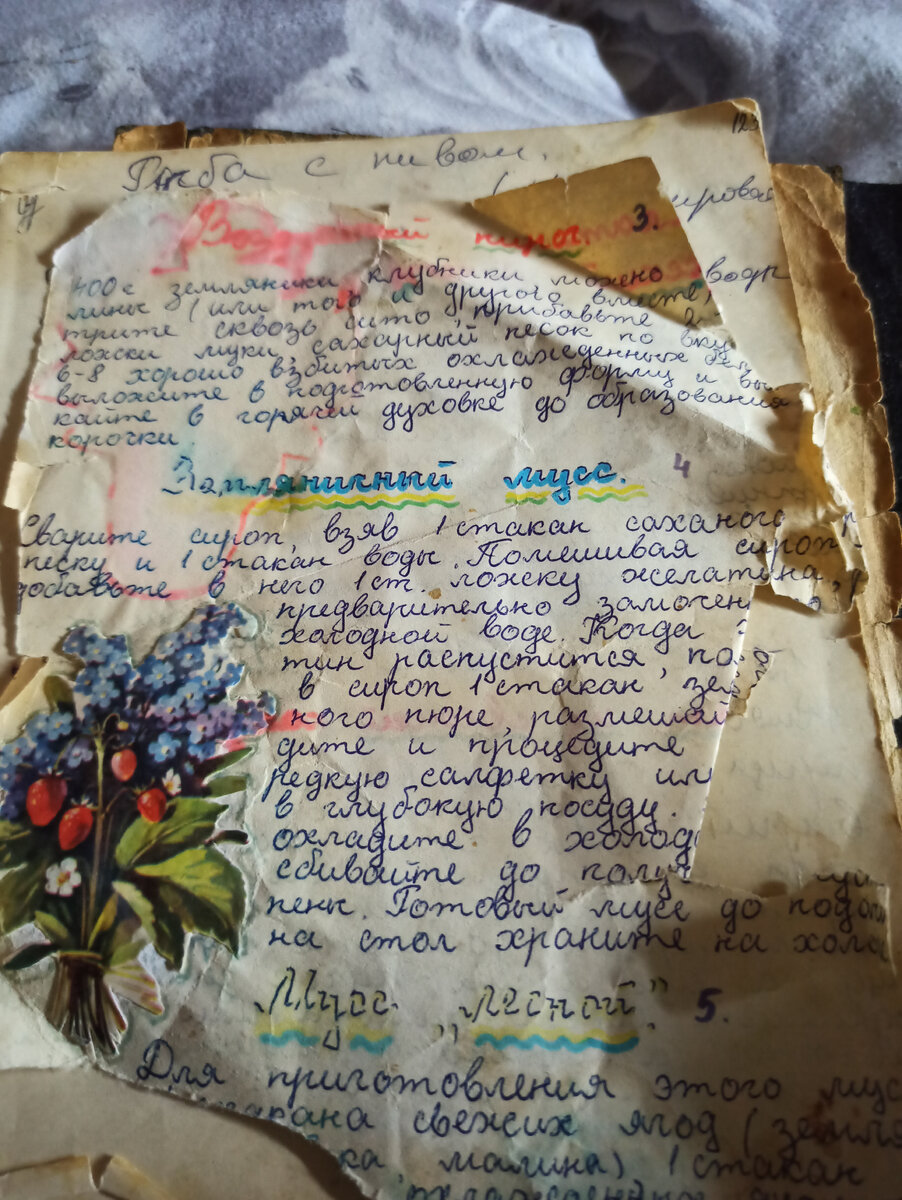 123
Рыба с пивом.
ировая
Воздушный пирог. 3.
400 г земляники клубники можно
лины (или того и другого вместе)
трите сквозь сито, прибавьте 2
ложки муки, сахарный песок по вку
6-8 хорошо взбитых охлажденных бел
выложите в подготовленную форму и вы
кайте в горячей духовке до образования
корочки.
Земляничный мусс. 4
Сварите сироп, взяв 1 стакан саханого
песку и 1 стакан воды. Помешивая сироп
добавьте в него 1 ст. ложку желатина,
предварительно замочен
холодной воде. Когда
тин распустится,
в сироп 1 стакан зем
ного пюре, размешай
дите и процедите
редкую салфетку или
в глубокую посуду.
охладите в холод
сбивайте до полу
пены. Готовый мусс до подачи
на стол храните на холо
Мусс „Лесной”. 5.
Для приготовления этого мус
стакана свежих ягод (земля
ка, малина) 1 стакан
охлажденных